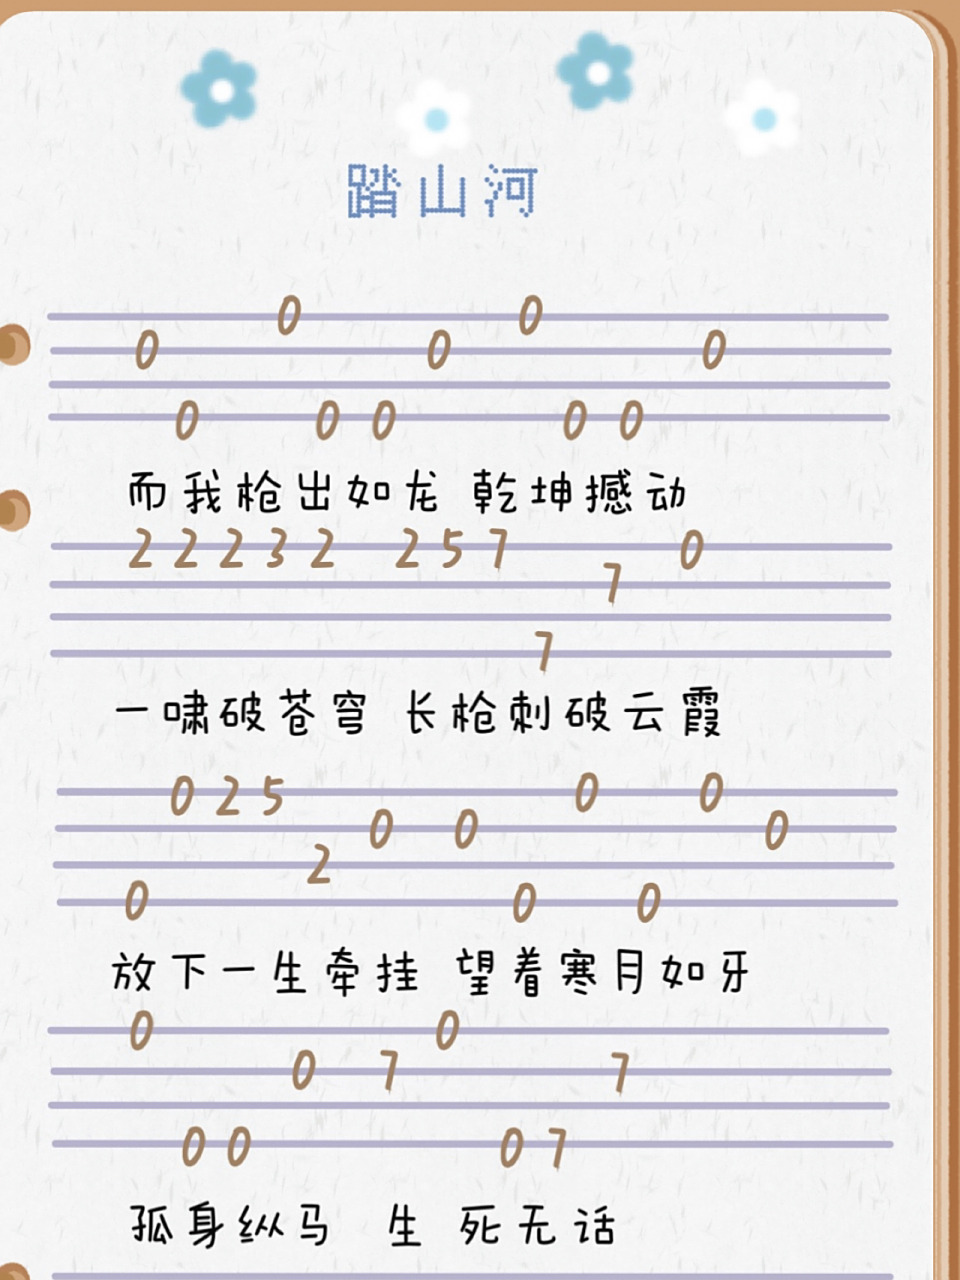 踏山河
0 0 0 0 0 0 0 0 0 0
而我枪出如龙 乾坤撼动
2 2 2 3 2 2 5 7 7 7 0
一啸破苍穹 长枪刺破云霞
0 0 2 5 2 0 0 0 0 0 0 0
放下一生牵挂 望着寒月如牙
0 0 0 0 7 0 0 7 7
孤身纵马 生 死无话